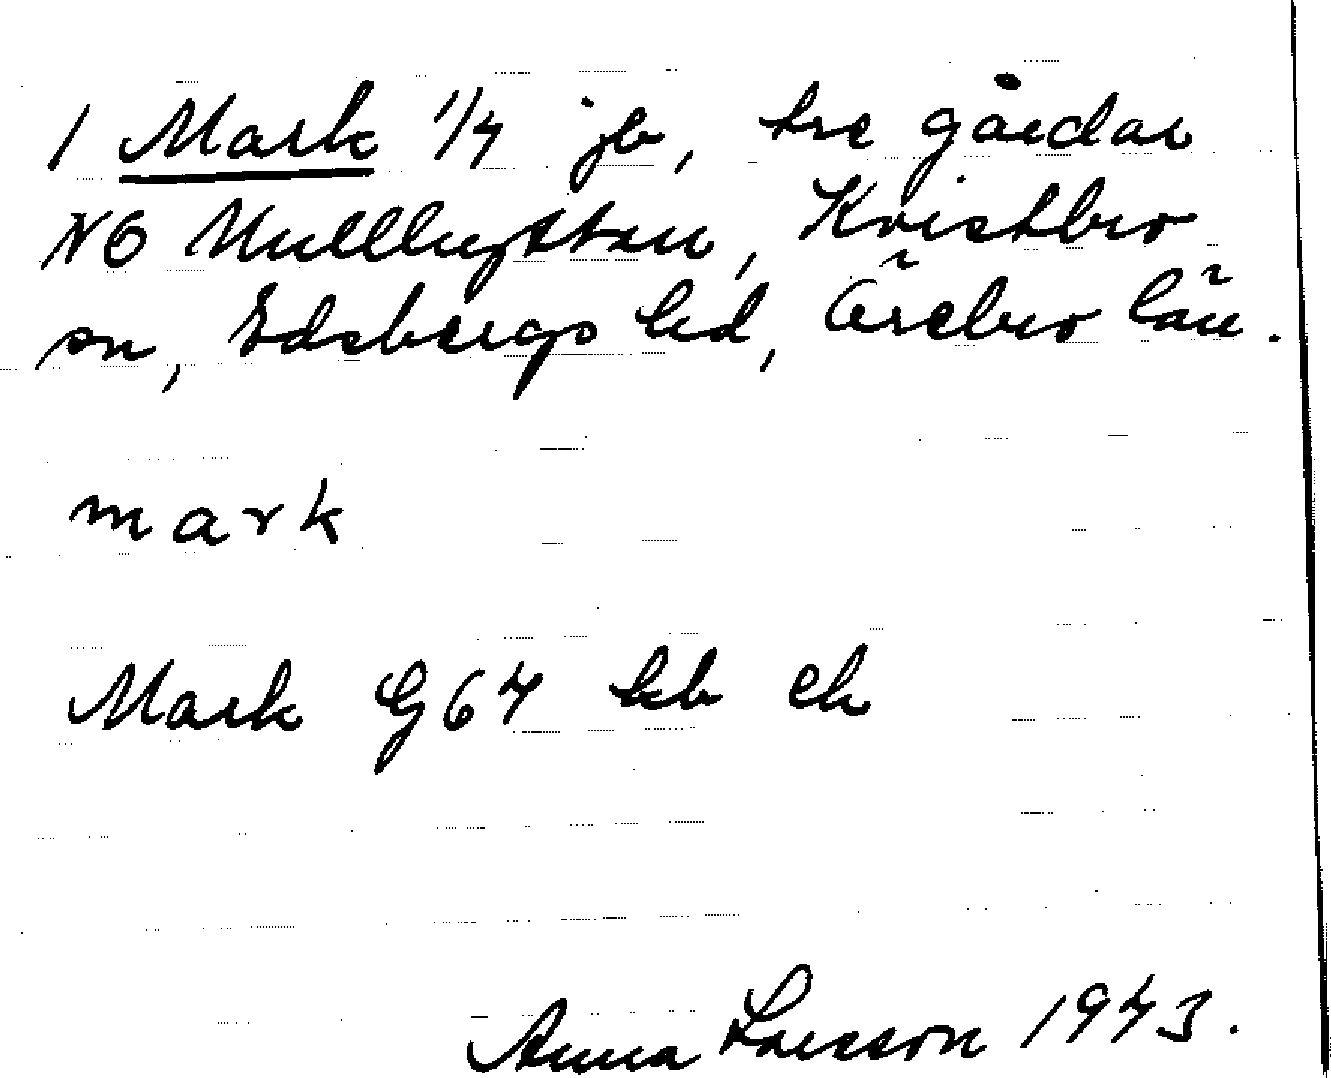 1 Mark 1/4 jb, tre gårdar
NO Mullhyttan, Kvistbro
sn, Edsbergs hd, Örebro län.
mark
Mark G64 kb ek
Anna Larsson 1943.